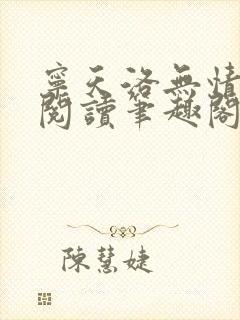 寧天洛無情
閱讀筆趣閣
陳慧婕